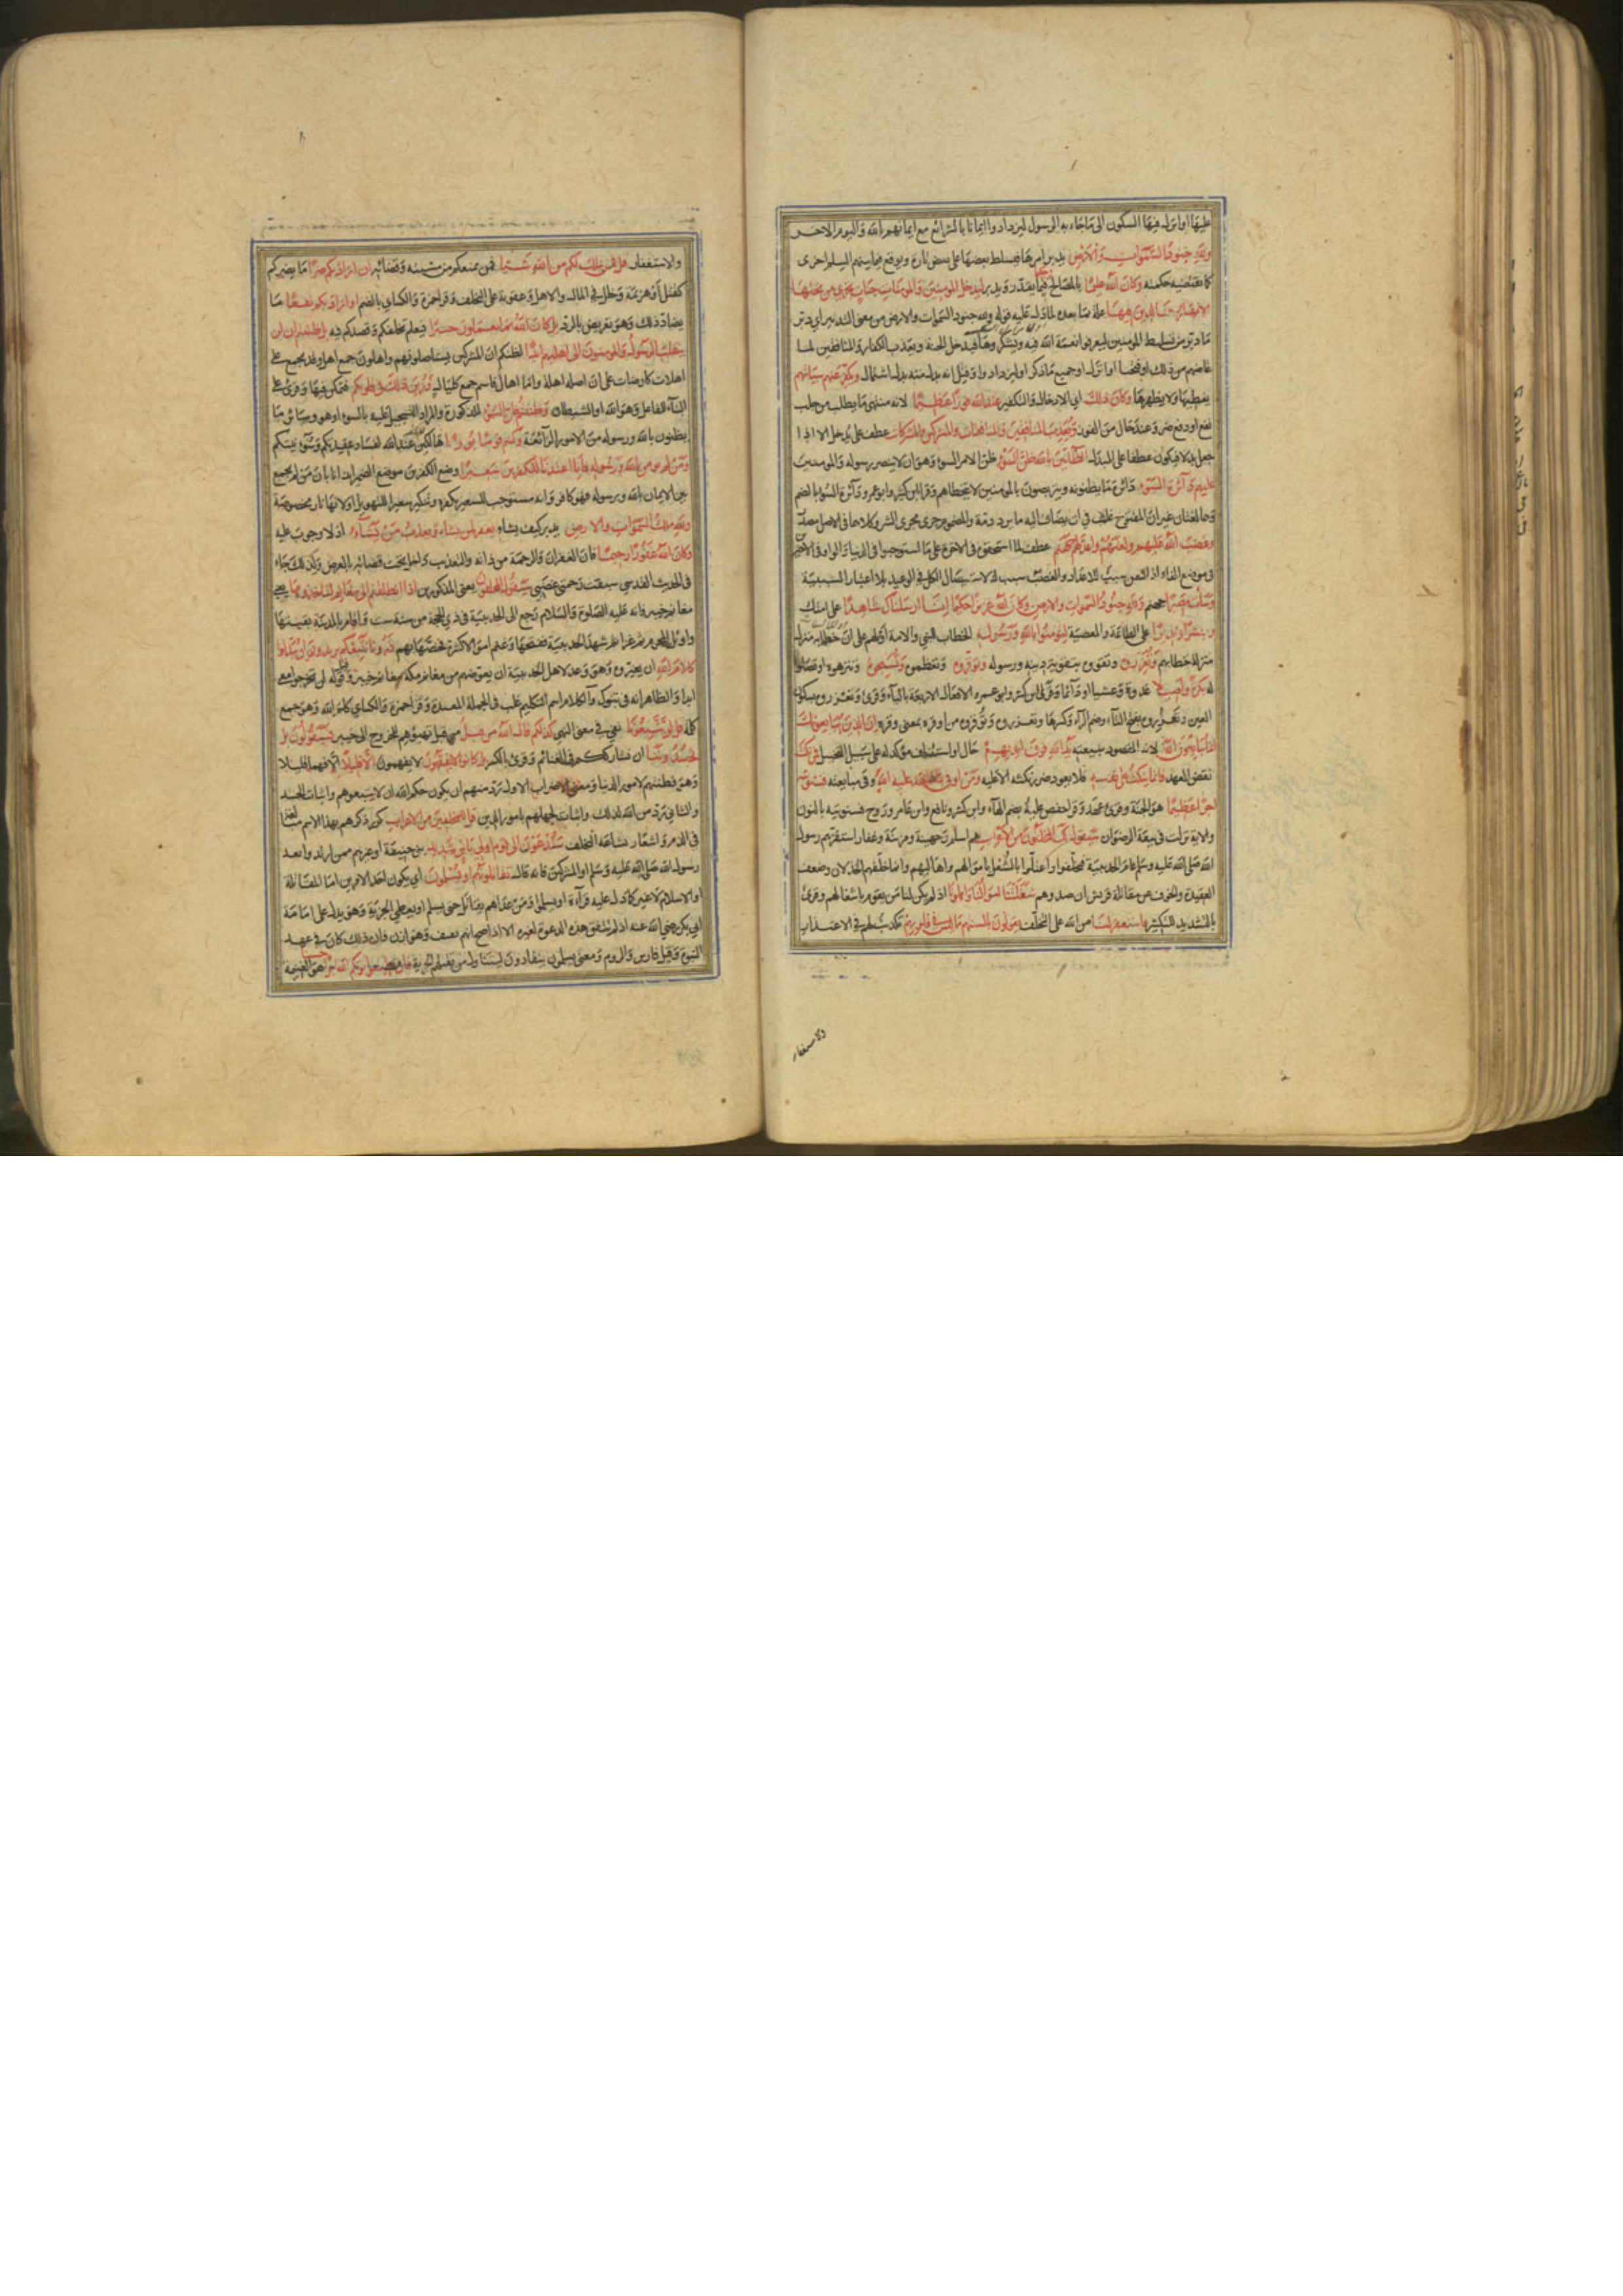 عليها او انزل فيها السكون الى ما جاء به الرسول ليزدادوا ايمانا بالشرائع مع ايمانهم بالله واليوم الاخر
ولله جنود السموات والارض يدبر امرها فيسلط بعضها على بعض تارة ويوقع فيما بينهم السلم اخرى
كما تقتضيه حكمته وكان الله عليما بالمصالح حكيما فيما يقدر ويدبر ليدخل المومنين والمومنات جنات تجرى من تحتها
الانهار خالدين فيها علة بما بعده لما دل عليه قوله ولله جنود السموات والارض من معنى التدبير اى دبر
ما دبر من تسليط المومنين ليعرفوا نعمة الله فيه ويشكروها فيدخل الجنة ويعذب الكفار والمنافقين لما
غاضهم من ذلك او فتحنا او انزل او جميع ما ذكر او ليزدادوا وقيل انه بدل منه بدل اشتمال ويكفر عنهم سيئاتهم
يغطيها ولا يظهرها وكان ذلك اى الادخال والتكفير عند الله فوزا عظيما لانه منتهى ما يطلب من جلب
نفع او دفع ضر وعند حال من الفوز ويعذب المنافقين والمنافقات والمشركين والمشركات عطف على يدخل الا اذا
جعل بدلا فيكون عطفا على المبدل الظانين بالله ظن السوء ظن الامر السوء وهو ان لا ينصر رسوله والمومنين
عليهم دائرة السوء دائرة ما يظنونه ويتربصون بالمومنين لا يتخطاهم وقرا ابن كثير وابو عمرو دائرة السوء بالضم
وهما لغتان غير ان المفتوح غلب فى ان يضاف اليه ما يراد ذمه والمضموم جرى مجرى الشر وكلاهما فى الاصل مصدر
وغضب الله عليهم ولعنهم واعد لهم جهنم عطف لما استحقوه فى الاخرة على ما استوجبوا فى الدنيا والواو فى الاخيرين
فى موضع الفاء اذ اللعن سبب للاعداد والغضب سبب له لاستقلال الكل فى الوعيد بلا اعتبار السببية
وساءت مصيرا جهنم ولله جنود السموات والارض وكان الله عزيزا حكيما انا ارسلناك شاهدا على امتك
ومبشرا ونذيرا على الطاعة والمعصية لتومنوا بالله ورسوله الخطاب للنبى والامة او لهم على ان خطابه منزل
منزلة خطابهم وتعزروه وتقووه بتقوية دينه ورسوله وتوقروه وتعظموه وتسبحوه وتنزهوه او تصلوا
له بكرة واصيلا غدوة وعشيا او دائما وقرا ابن كثير وابو عمرو الافعال الاربعة بالياء وقرئ وتعزروه بسكون
العين وتعزروه بفتح التاء وضم الزاء وكسرها وتعززوه وتوقروه من اوقره بمعنى وقره ان الذين يبايعونك
انما يبايعون الله لانه المقصود ببيعته يد الله فوق ايديهم حال او استئناف موكد له على سبيل التخييل فمن نكث
نقض العهد فانما ينكث على نفسه فلا يعود ضر نكثه الا عليه ومن اوفى بما عاهد عليه الله وفى مبايعته فسنوتيه
اجرا عظيما هو الجنة وقرئ عهد وقرا حفص عليه بضم الهاء وابن كثير ونافع وابن عامر وروح فسنوتيه بالنون
والاية نزلت فى بيعة الرضوان سيقول لك المخلفون من الاعراب هم اسلم وجهينة ومزينة وغفار استنفرهم رسول
الله صلى الله عليه وسلم عام الحديبية فتخلفوا واعتلوا بالشغل باموالهم واهاليهم وانما خلفهم الخذلان وضعف
العقيدة والخوف عن مقاتلة قريش ان صدوهم شغلتنا اموالنا واهلونا اذ لم يكن لنا من يقوم باشغالهم وقرئ
بالتشديد للتكثير فاستغفر لنا من الله على التخلف يقولون بالسنتهم ما ليس فى قلوبهم تكذيب لهم فى الاعتذار
والاستغفار
والاستغفار قل فمن يملك لكم من الله شيئا فمن يمنعكم من مشيته وقضائه ان اراد بكم ضرا ما يضركم
كقتل او هزيمة وخلل فى المال والاهل وعقوبة على التخلف وقرا حمزة والكسائى بالضم او اراد بكم نفعا ما
يضاد ذلك وهو تعريض بالرد بل كان الله بما تعملون خبيرا فيعلم تخلفكم وقصدكم فيه بل ظننتم ان لن
ينقلب الرسول والمومنون الى اهليهم ابدا لظنكم ان المشركين يستاصلونهم واهلون جمع اهل وقد يجمع على
اهلات كارضات على ان اصله اهلة واما اهال فاسم جمع كليال وزين ذلك فى قلوبكم فتمكن فيها وقرئ على
البناء للفاعل وهو الله او الشيطان وظننتم ظن السوء المذكور والمراد التسجيل عليه بالسوء او هو وسائر ما
يظنون بالله ورسوله من الامور الزائغة وكنتم قوما بورا هالكين عند الله لفساد عقيدتكم وسوء نيتكم
ومن لم يومن بالله ورسوله فانا اعتدنا للكافرين سعيرا وضع الكافرين موضع الضمير ايذانا بان من لم يجمع
بين الايمان بالله وبرسوله فهو كافر وانه مستوجب للسعير بكفره وتنكير سعيرا للتهويل او لانها نار مخصوصة
ولله ملك السموات والارض يدبر كيف يشاء يغفر لمن يشاء ويعذب من يشاء اذ لا وجوب عليه
وكان الله غفورا رحيما فان الغفران والرحمة من ذاته والتعذيب داخل تحت قضائه بالعرض ولذلك جاء
فى الحديث القدسى سبقت رحمتى غضبى سيقول المخلفون يعنى المذكورين اذا انطلقتم الى مغانم لتاخذوها يعنى
مغانم خيبر فانه عليه الصلوة والسلام رجع الى الحديبية فى ذى الحجة من سنة ست واقام بالمدينة بقيتها
واوائل المحرم ثم غزا خيبر بمن شهد الحديبية ففتحها وغنم اموالا كثيرة فخصها بهم ذرونا نتبعكم يريدون ان يبدلوا
كلام الله ان يغيروه وهو وعده لاهل الحديبية ان يعوضهم من مغانم مكة مغانم خيبر وقيل قوله لن تخرجوا معى
ابدا والظاهر انه فى تبوك والكلام اسم للتكليم غلب فى الجملة المفيدة وقرا حمزة والكسائى كلم الله وهو جمع
كلمة قل لن تتبعونا نفى فى معنى النهى كذلكم قال الله من قبل من قبل تهيئهم للخروج الى خيبر فسيقولون بل
تحسدوننا ان نشارككم فى الغنائم وقرئ بالكسر بل كانوا لا يفقهون لا يفهمون الا قليلا الا فهما قليلا
وهو فطنتهم لامور الدنيا ومعنى الاضراب الاول رد منهم ان يكون حكم الله ان لا يتبعوهم واثبات الحسد
والثانى رد من الله لذلك واثبات لجهلهم بامور الدين قل للمخلفين من الاعراب كرر ذكرهم بهذا الاسم مبالغة
فى الذم واشعارا بشناعة التخلف ستدعون الى قوم اولى باس شديد بنى حنيفة او غيرهم ممن ارتدوا بعد
رسول الله صلى الله عليه وسلم او المشركين فانه قال تقاتلونهم او يسلمون اى يكون احد الامرين اما المقاتلة
او الاسلام لا غير كما دل عليه قراءة او يسلموا ومن عداهم يقاتل حتى يسلم او يعطى الجزية وهو يدل على امامة
ابى بكر رضى الله عنه اذ لم يتفق هذه الدعوة لغيره الا اذا صح انهم ثقيف وهوازن فان ذلك كان فى عهد
النبوة وقيل فارس والروم ومعنى يسلمون ينقادون ليتناول من تقبل الجزية فان تطيعوا يوتكم الله اجرا حسنا هو الغنيمة